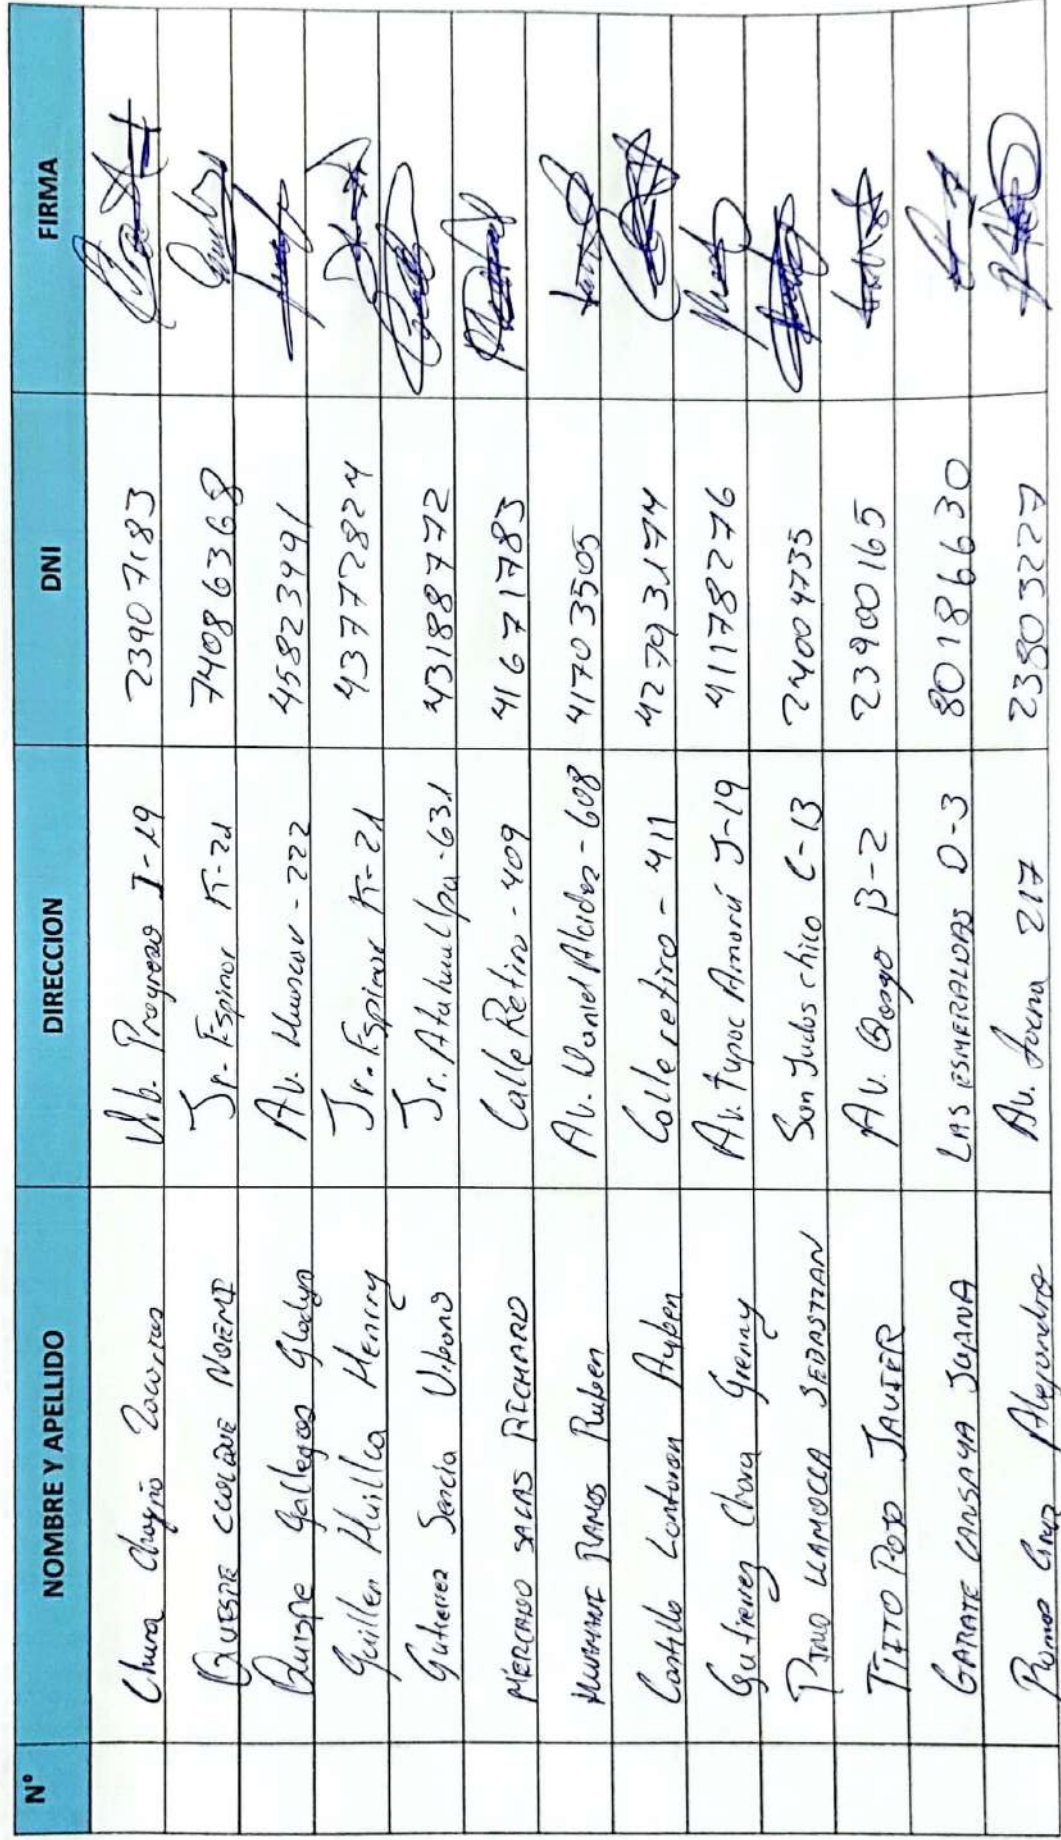 N° NOMBRE Y APELLIDO DIRECCION DNI FIRMA
Chura Chagño Zacarias Urb. Progreso I-19 23907183
QUISPE CCOLQUE NOEMI Jr. Espinar K-21 74086368
Quispe Gallegos Gladys Av. Huascar - 222 45823491
Guillen Huillca Henrry Jr. Espinar K-21 43777824
Gutierrez Sencia Vibiano Jr. Atahuallpa - 631 43188772
MERCADO SALAS RICHARD Calle Retiro - 409 41671783
HUAMANI RAMOS Ruben Av. Daniel Alcides - 608 41703505
Castillo Lontoron Ayben Calle retiro - 411 42793174
Gutierrez Chara Grenny Av. Tupac Amarú J-19 41178276
PINO LLAMOCCA SEBASTIAN San Judas chico C-13 24004735
TITTO POZO JAVIER AV. Qosqo B-2 23900165
GARATE CANSAYA JUANA LAS ESMERALDAS D-3 80186630
Ramos Cruz Alejandro Av. Tacna 217 23803227